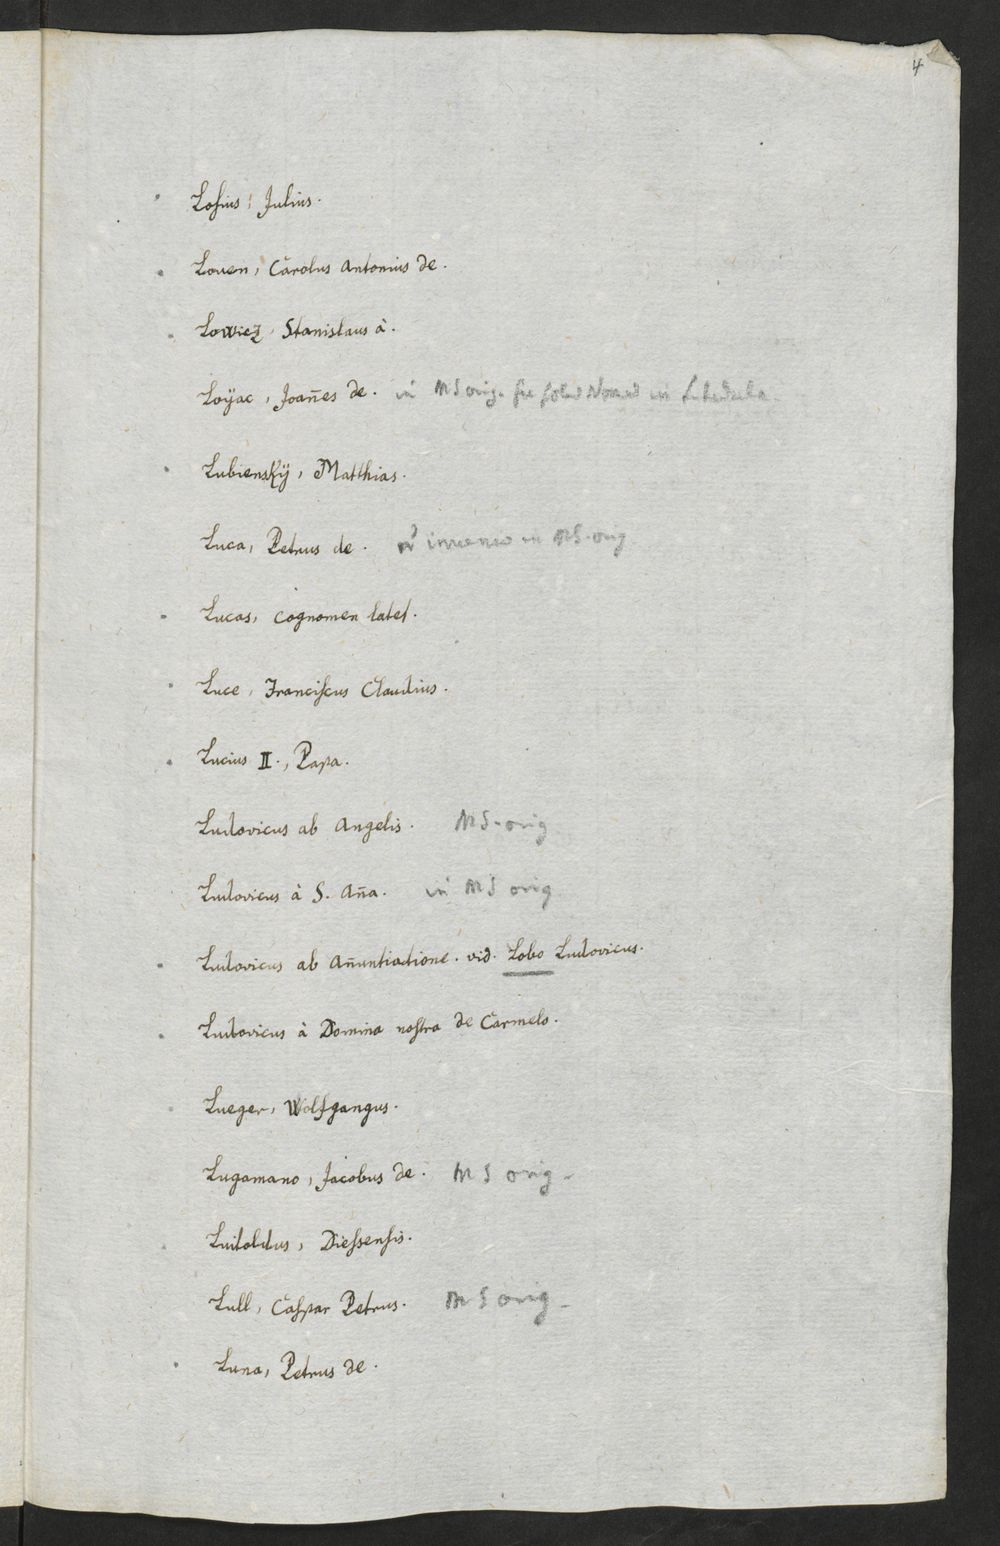 4
Loſius, Julius.
Louen, Carolus Antonius de.
Lowicz, Stanislaus à.
Loÿac, Joan̄es de. in MS orig. in Schedula.
Lubienskÿ, Matthias.
Luca, Petrus de. invenio in MS. orig
Lucas, cognomen latet.
Luce, Franciſcus Claudius.
Lucius II., Papa.
Ludovicus ab Angelis. MS. orig
Ludovicus à S. An̄a. in MS orig
Ludovicus ab An̄untiatione. vid. Lobo Ludovicus.
Ludovicus à Domina noſtra de Carmelo.
Lueger, Wolfgangus.
Lugamano, Jacobus de. MS orig.
Luitoldus, Dieſsenſis.
Lull, Caſpar Petrus. MS orig.
Luna, Petrus de.